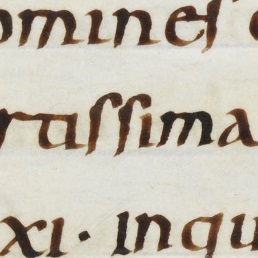 omines
rtissima
xi. inqu